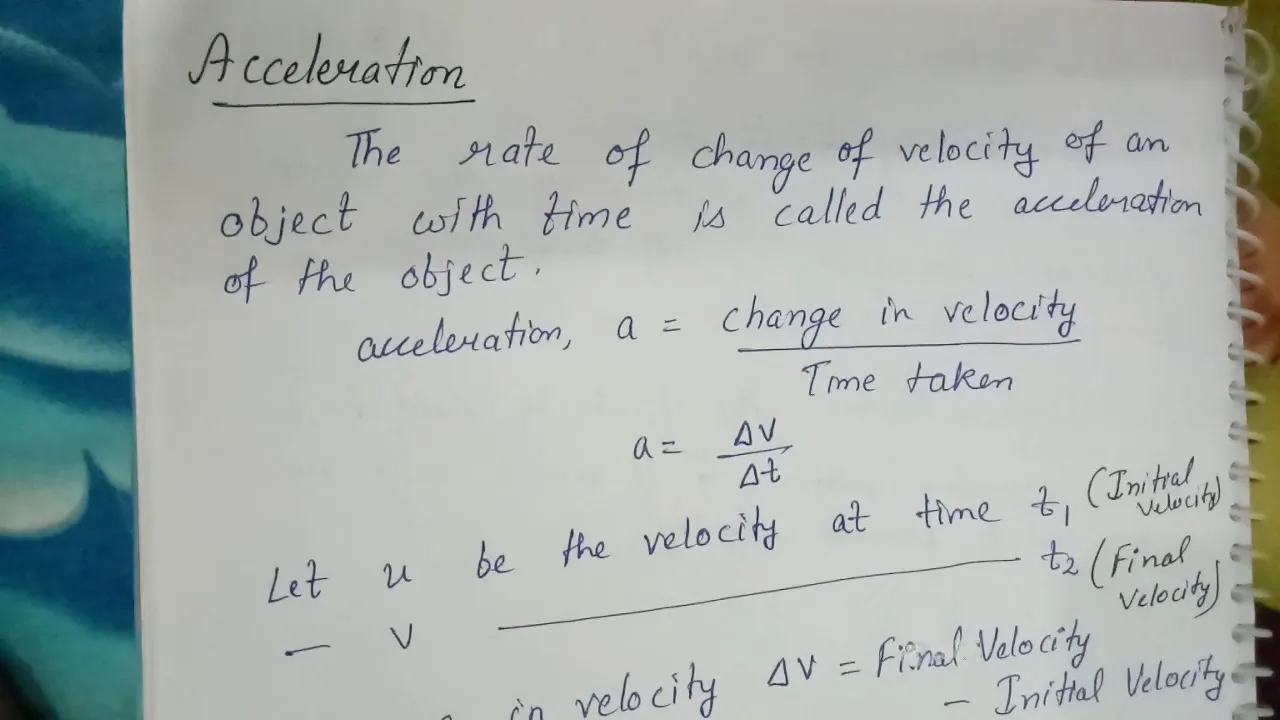 Acceleration
The rate of change of velocity of an
object with time is called the acceleration
of the object.
acceleration, a = change in velocity
Time taken
a = ΔV
Δt
Let u be the velocity at time t₁ (Initial Velocity)
— V ——— t₂ (Final Velocity)
in velocity ΔV = Final Velocity
– Initial Velocity